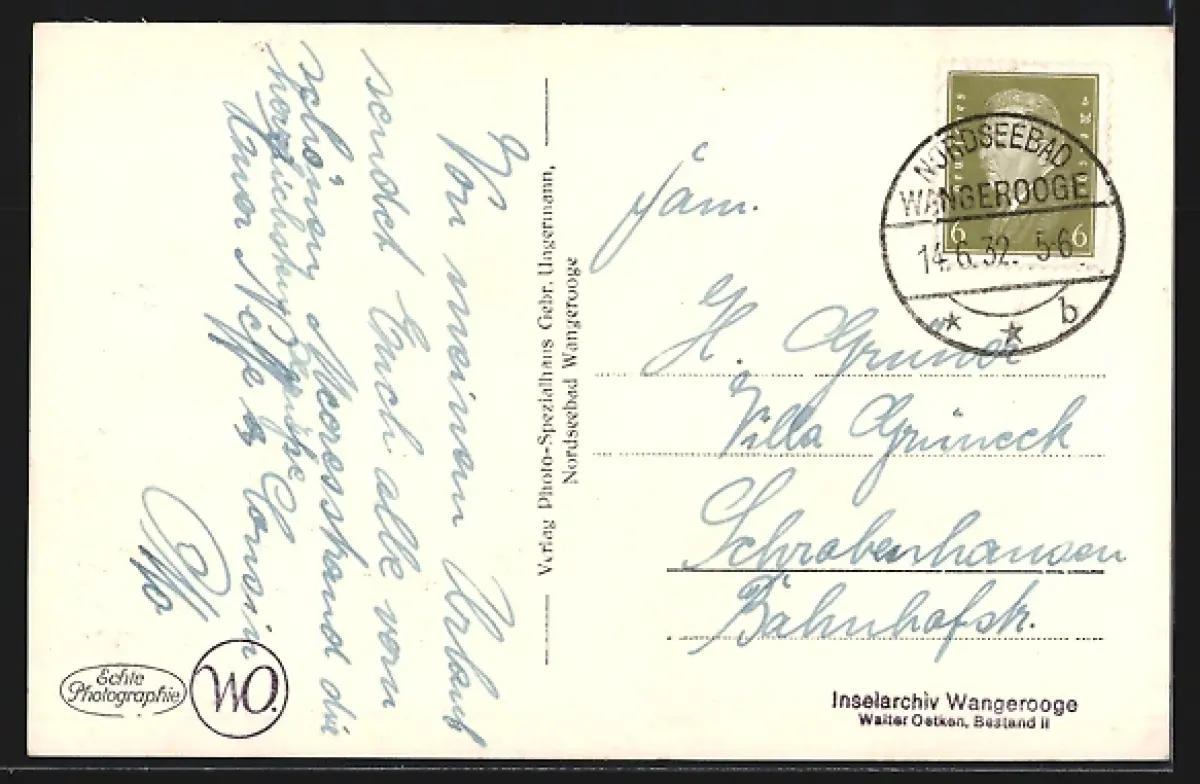 Von meinem Urlaub
sendet Euch alle vom
schönen Meeresstrand die
herzlichsten Grüße
Euer Neffe & Cousin
Verlag Photo-Spezialhaus Gebr. Ungermann,
Nordseebad Wangerooge
Deutsches Reich
6 6
NORDSEEBAD
WANGEROOGE
14.6.32. 5-6
b
Fam.
H. Gruner
Villa Grüneck
Schrobenhausen
Bahnhofstr.
Echte
Photographie
WO.
Inselarchiv Wangerooge
Walter Oetken, Bestand II